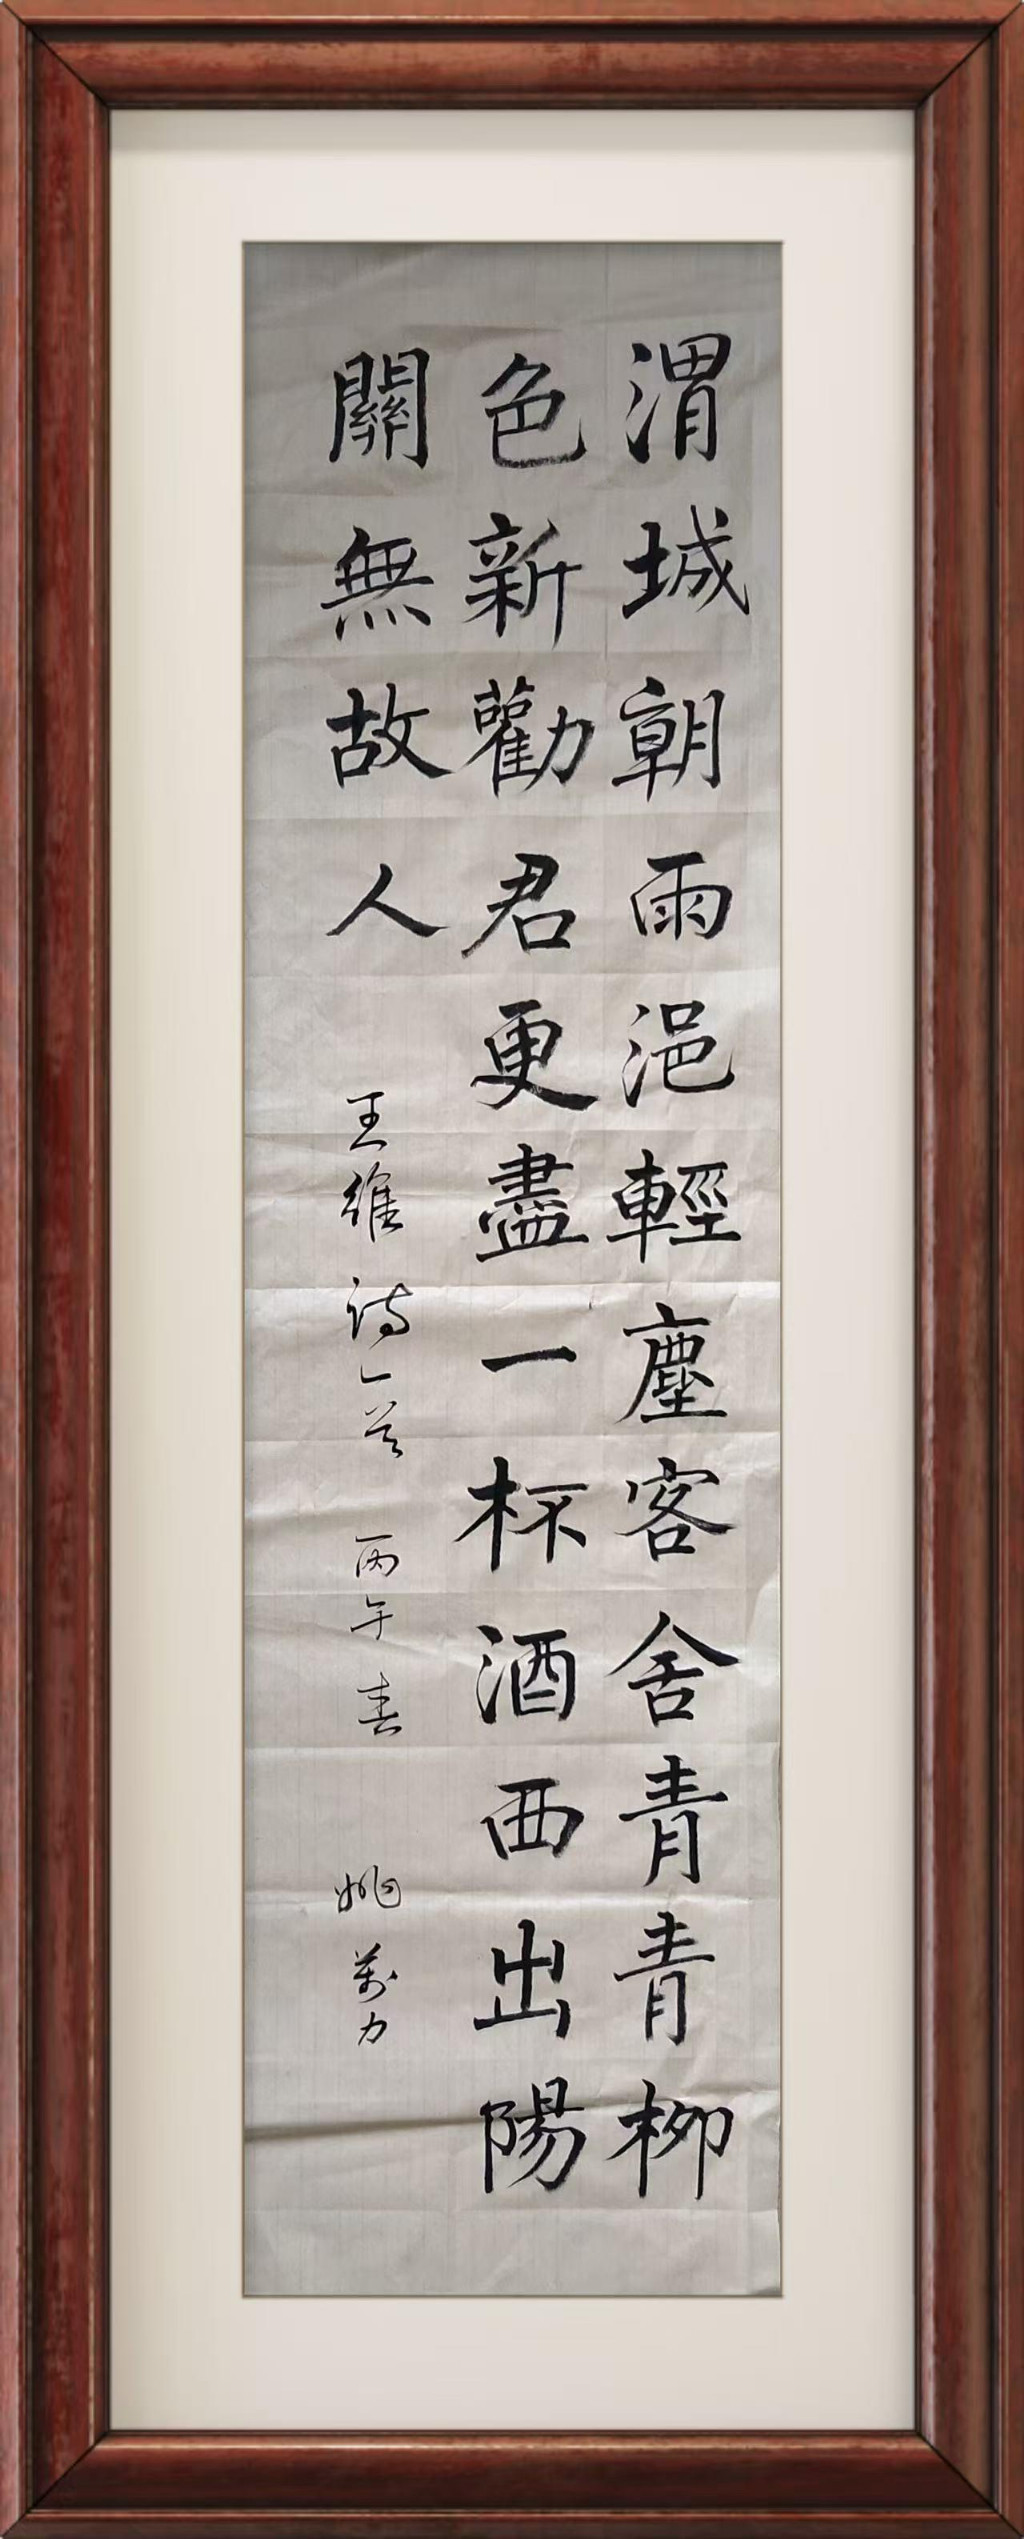 渭城朝雨浥輕塵客舍青青柳
色新勸君更盡一杯酒西出陽
關無故人
王維詩一首 丙午春 姚萬力